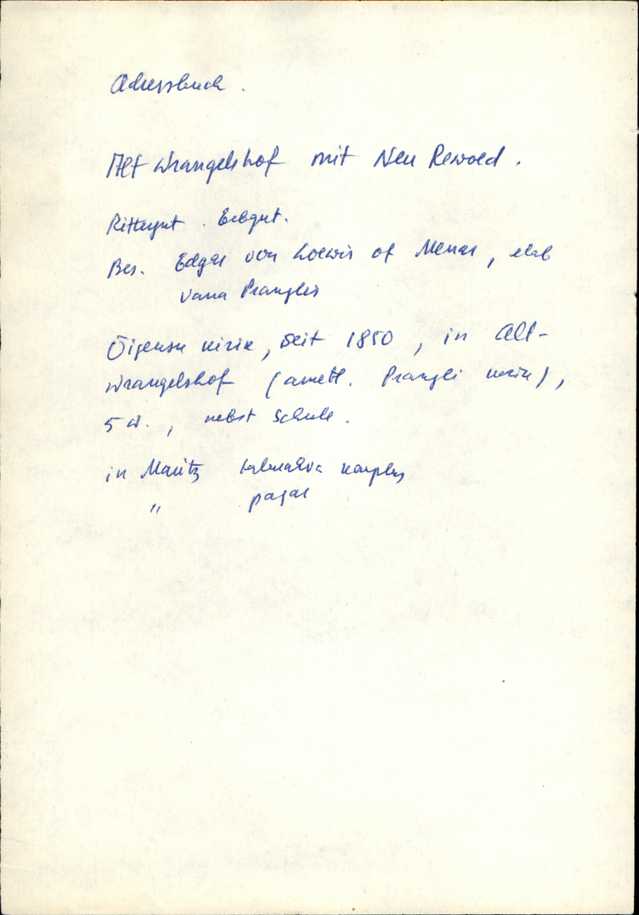 Adressbuch.
Alt Wrangelshof mit Neu Rewold.
Rittergut. Erbgut.
Bes. Edgar von Loewis of Menar, elab
Vana Pranglis
Õigeusu kirik, seit 1850, in Alt-
wrangelshof (ametl. Prangli kirik),
5 W., nebst Schule.
in Maritz kalmaküa kauplus
" pagar